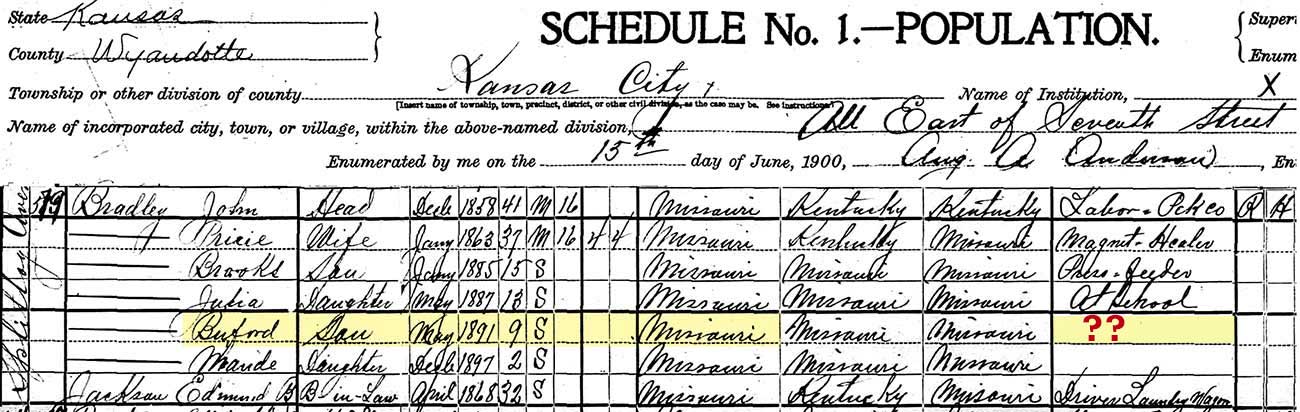 State Kansas
County Wyandotte
SCHEDULE No. 1.—POPULATION.
Super
Enum
Township or other division of county Kansas City,
Name of Institution, X
[Insert name of township, town, precinct, district, or other civil division, as the case may be. See instructions.]
Name of incorporated city, town, or village, within the above-named division, All East of Seventh Street
Enumerated by me on the 15th day of June, 1900, Aug. A Anderson, En
Bradley John Head 1858 41 M 16 Missouri Kentucky Kentucky Labor - Pck co R H
Pricie Wife Jany 1863 37 M 16 4 4 Missouri Kentucky Missouri Magnet - Healer
Brooks Son Jany 1885 15 S Missouri Missouri Missouri Press-feeder
Julia Daughter May 1887 13 S Missouri Missouri Missouri At School
Buford Son May 1891 9 S Missouri Missouri Missouri ??
Maude Daughter 1897 2 S Missouri Missouri Missouri
Jackson Edmund B B-in-Law April 1868 32 S Missouri Kentucky Missouri Driver Laundry Wagon